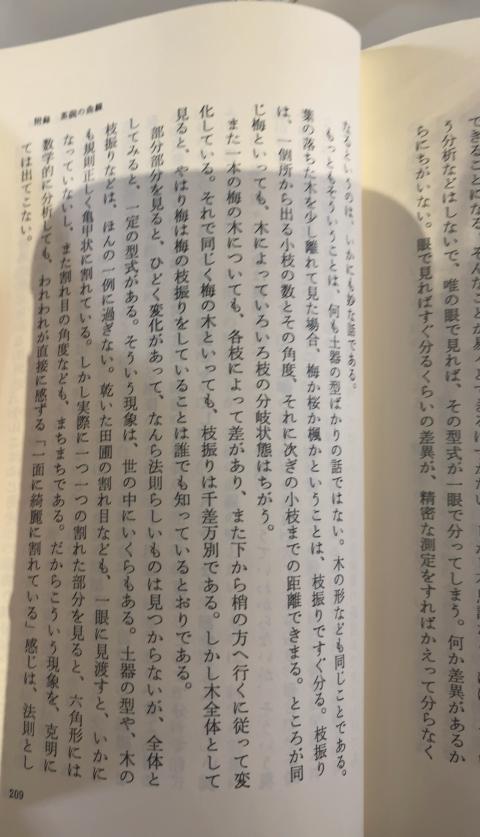 う分析などはしないで、唯の眼で見れば、その型式が一眼で分ってしまう。何か差異があるか
らにちがいない。眼で見ればすぐ分るくらいの差異が、精密な測定をすればかえって分らなく
附録　茶碗の曲線
なるというのは、いかにも妙な話である。
もっともそういうことは、何も土器の型ばかりの話ではない。木の形なども同じことである。
葉の落ちた木を少し離れて見た場合、梅か桜か楓かということは、枝振りですぐ分る。枝振り
は、一個所から出る小枝の数とその角度、それに次ぎの小枝までの距離できまる。ところが同
じ梅といっても、木によっていろいろ枝の分岐状態はちがう。
また一本の梅の木についても、各枝によって差があり、また下から梢の方へ行くに従って変
化している。それで同じく梅の木といっても、枝振りは千差万別である。しかし木全体として
見ると、やはり梅は梅の枝振りをしていることは誰でも知っているとおりである。
部分部分を見ると、ひどく変化があって、なんら法則らしいものは見つからないが、全体と
してみると、一定の型式がある。そういう現象は、世の中にいくらもある。土器の型や、木の
枝振りなどは、ほんの一例に過ぎない。乾いた田圃の割れ目なども、一眼に見渡すと、いかに
も規則正しく亀甲状に割れている。しかし実際に一つ一つの割れた部分を見ると、六角形には
なっていないし、また割れ目の角度なども、まちまちである。だからこういう現象を、克明に
数学的に分析しても、われわれが直接に感ずる「一面に綺麗に割れている」感じは、法則とし
ては出てこない。
209